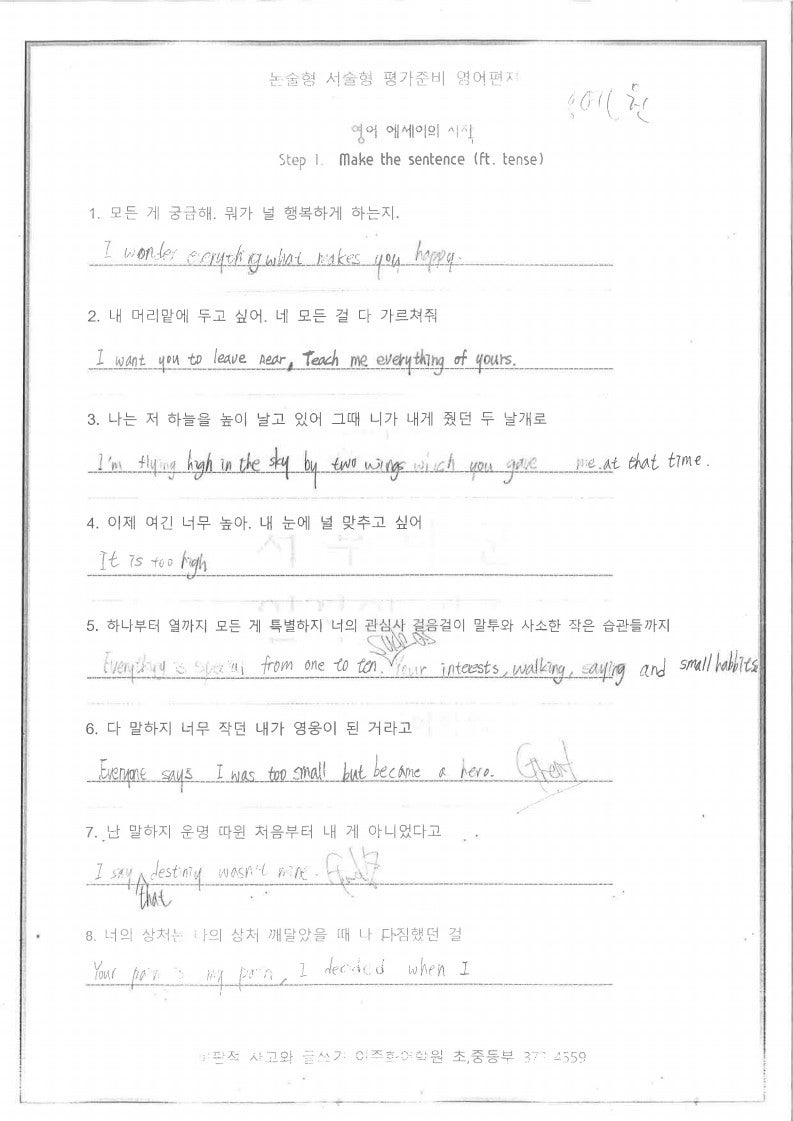 논술형 서술형 평가준비 영어편지
영어 에세이의 시작
Step 1. Make the sentence (ft. tense)
1. 모든 게 궁금해. 뭐가 널 행복하게 하는지.
I wonder everything what makes you happy.
2. 내 머리맡에 두고 싶어. 네 모든 걸 다 가르쳐줘
I want you to leave near, Teach me everything of yours.
3. 나는 저 하늘을 높이 날고 있어 그때 니가 내게 줬던 두 날개로
I'm flying high in the sky by two wings which you gave me. at that time.
4. 이제 여긴 너무 높아. 내 눈에 널 맞추고 싶어
It is too high
5. 하나부터 열까지 모든 게 특별하지 너의 관심사 걸음걸이 말투와 사소한 작은 습관들까지
such as
Everything is special from one to ten. Your interests, walking, saying and small habbits
6. 다 말하지 너무 작던 내가 영웅이 된 거라고
Everyone says I was too small but became a hero. Great
7. 난 말하지 운명 따윈 처음부터 내 게 아니었다고
I say destiny wasn't mine. Good
that
8. 너의 상처는 나의 상처 깨달았을 때 나 다짐했던 걸
Your pain is my pain, I decided when I
사고와 글쓰기 초,중등부 371 4559